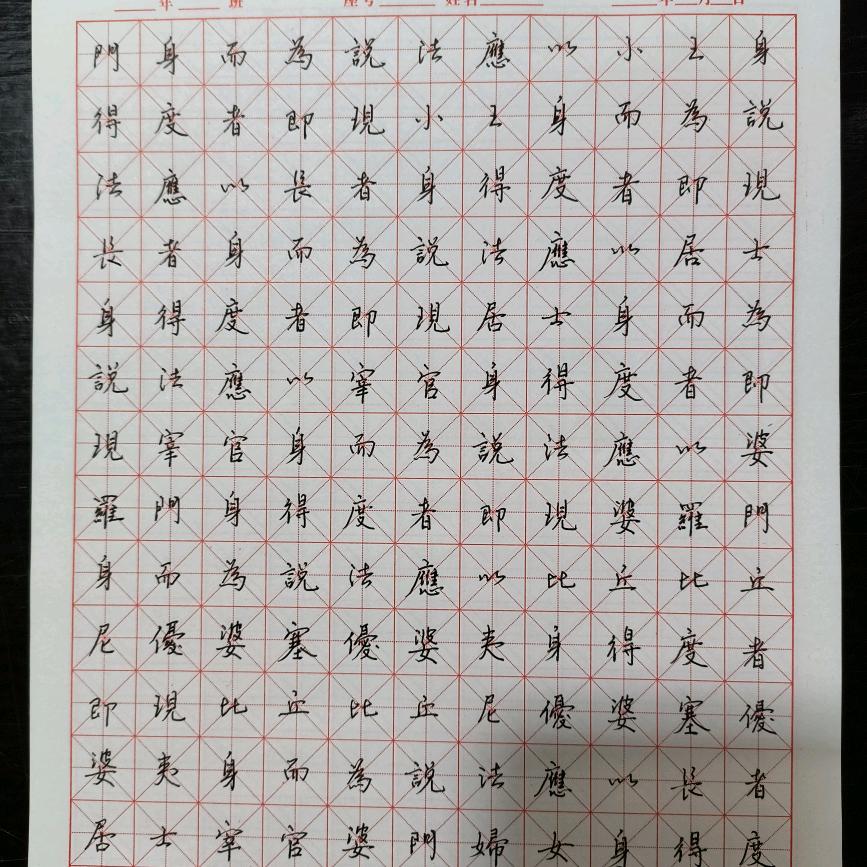 年 班 座号 姓名 年 月 日
門身而為説法應以小王身
得度者即現小王身而為説
法應以長者身得度者即現
長者身而為説法應以居士
身得度者即現居士身而為
説法應以宰官身得度者即
現宰官身而為説法應以婆
羅門身得度者即現婆羅門
身而為説法應以比丘比丘
尼優婆塞優婆夷身得度者
即現比丘比丘尼優婆塞優
婆夷身而為説法應以長者
居士宰官婆門婦女身得度